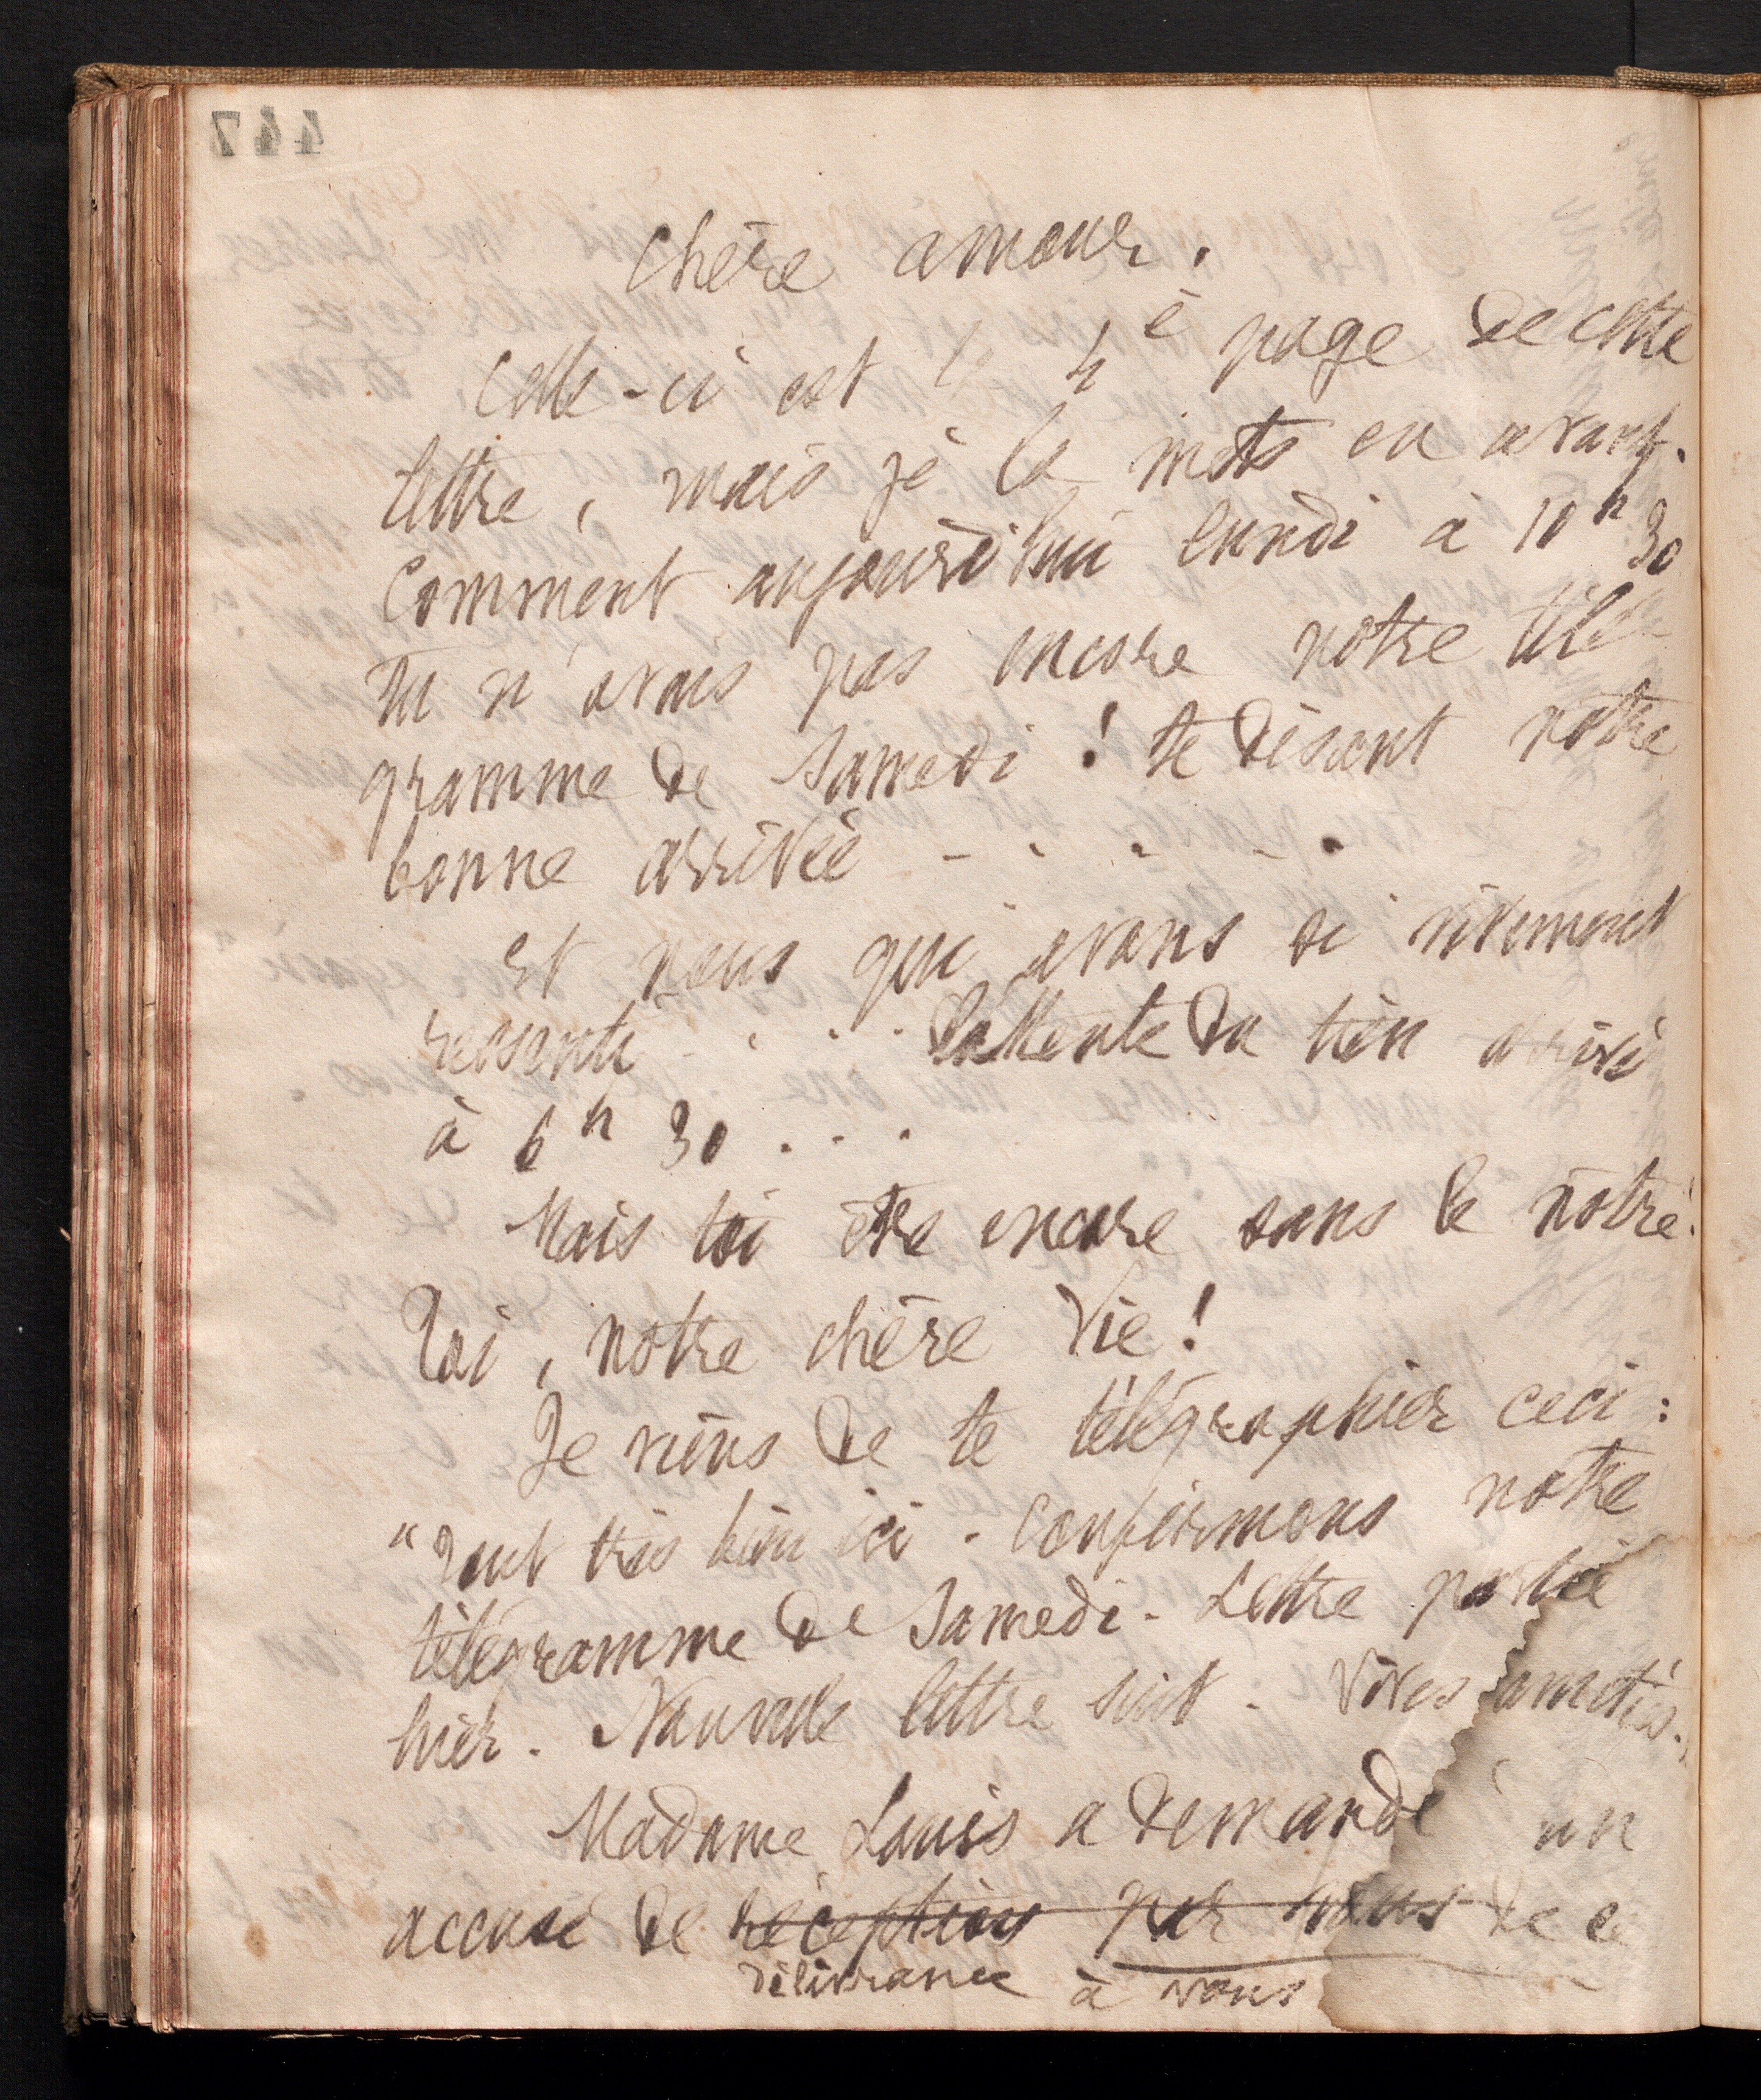 Chère amour.
Celle-ci est la 4e page de cette
lettre, mais je la mets en avant.
Comment aujourd'hui lundi à 10h30
Tu n'avais pas encore notre télé
gramme de Samedi ! te disant notre
bonne arrivée - . . - .
Et nous qui avons si vivement
ressenti - . . . l'attente du tien arrivé
à 6h 30 . . .
Mais toi être encore sans le nôtre !
Toi, notre chère Vie !
Je viens de te télégraphier ceci :
" Tout très bien ici - Confirmons notre
télégramme de Samedi - Lettre partie
hier - Nouvelle lettre suit - Vives amitiés. "
Madame Louis a demandé un
accusé de réception par nous de ce
délivrance à vous
447